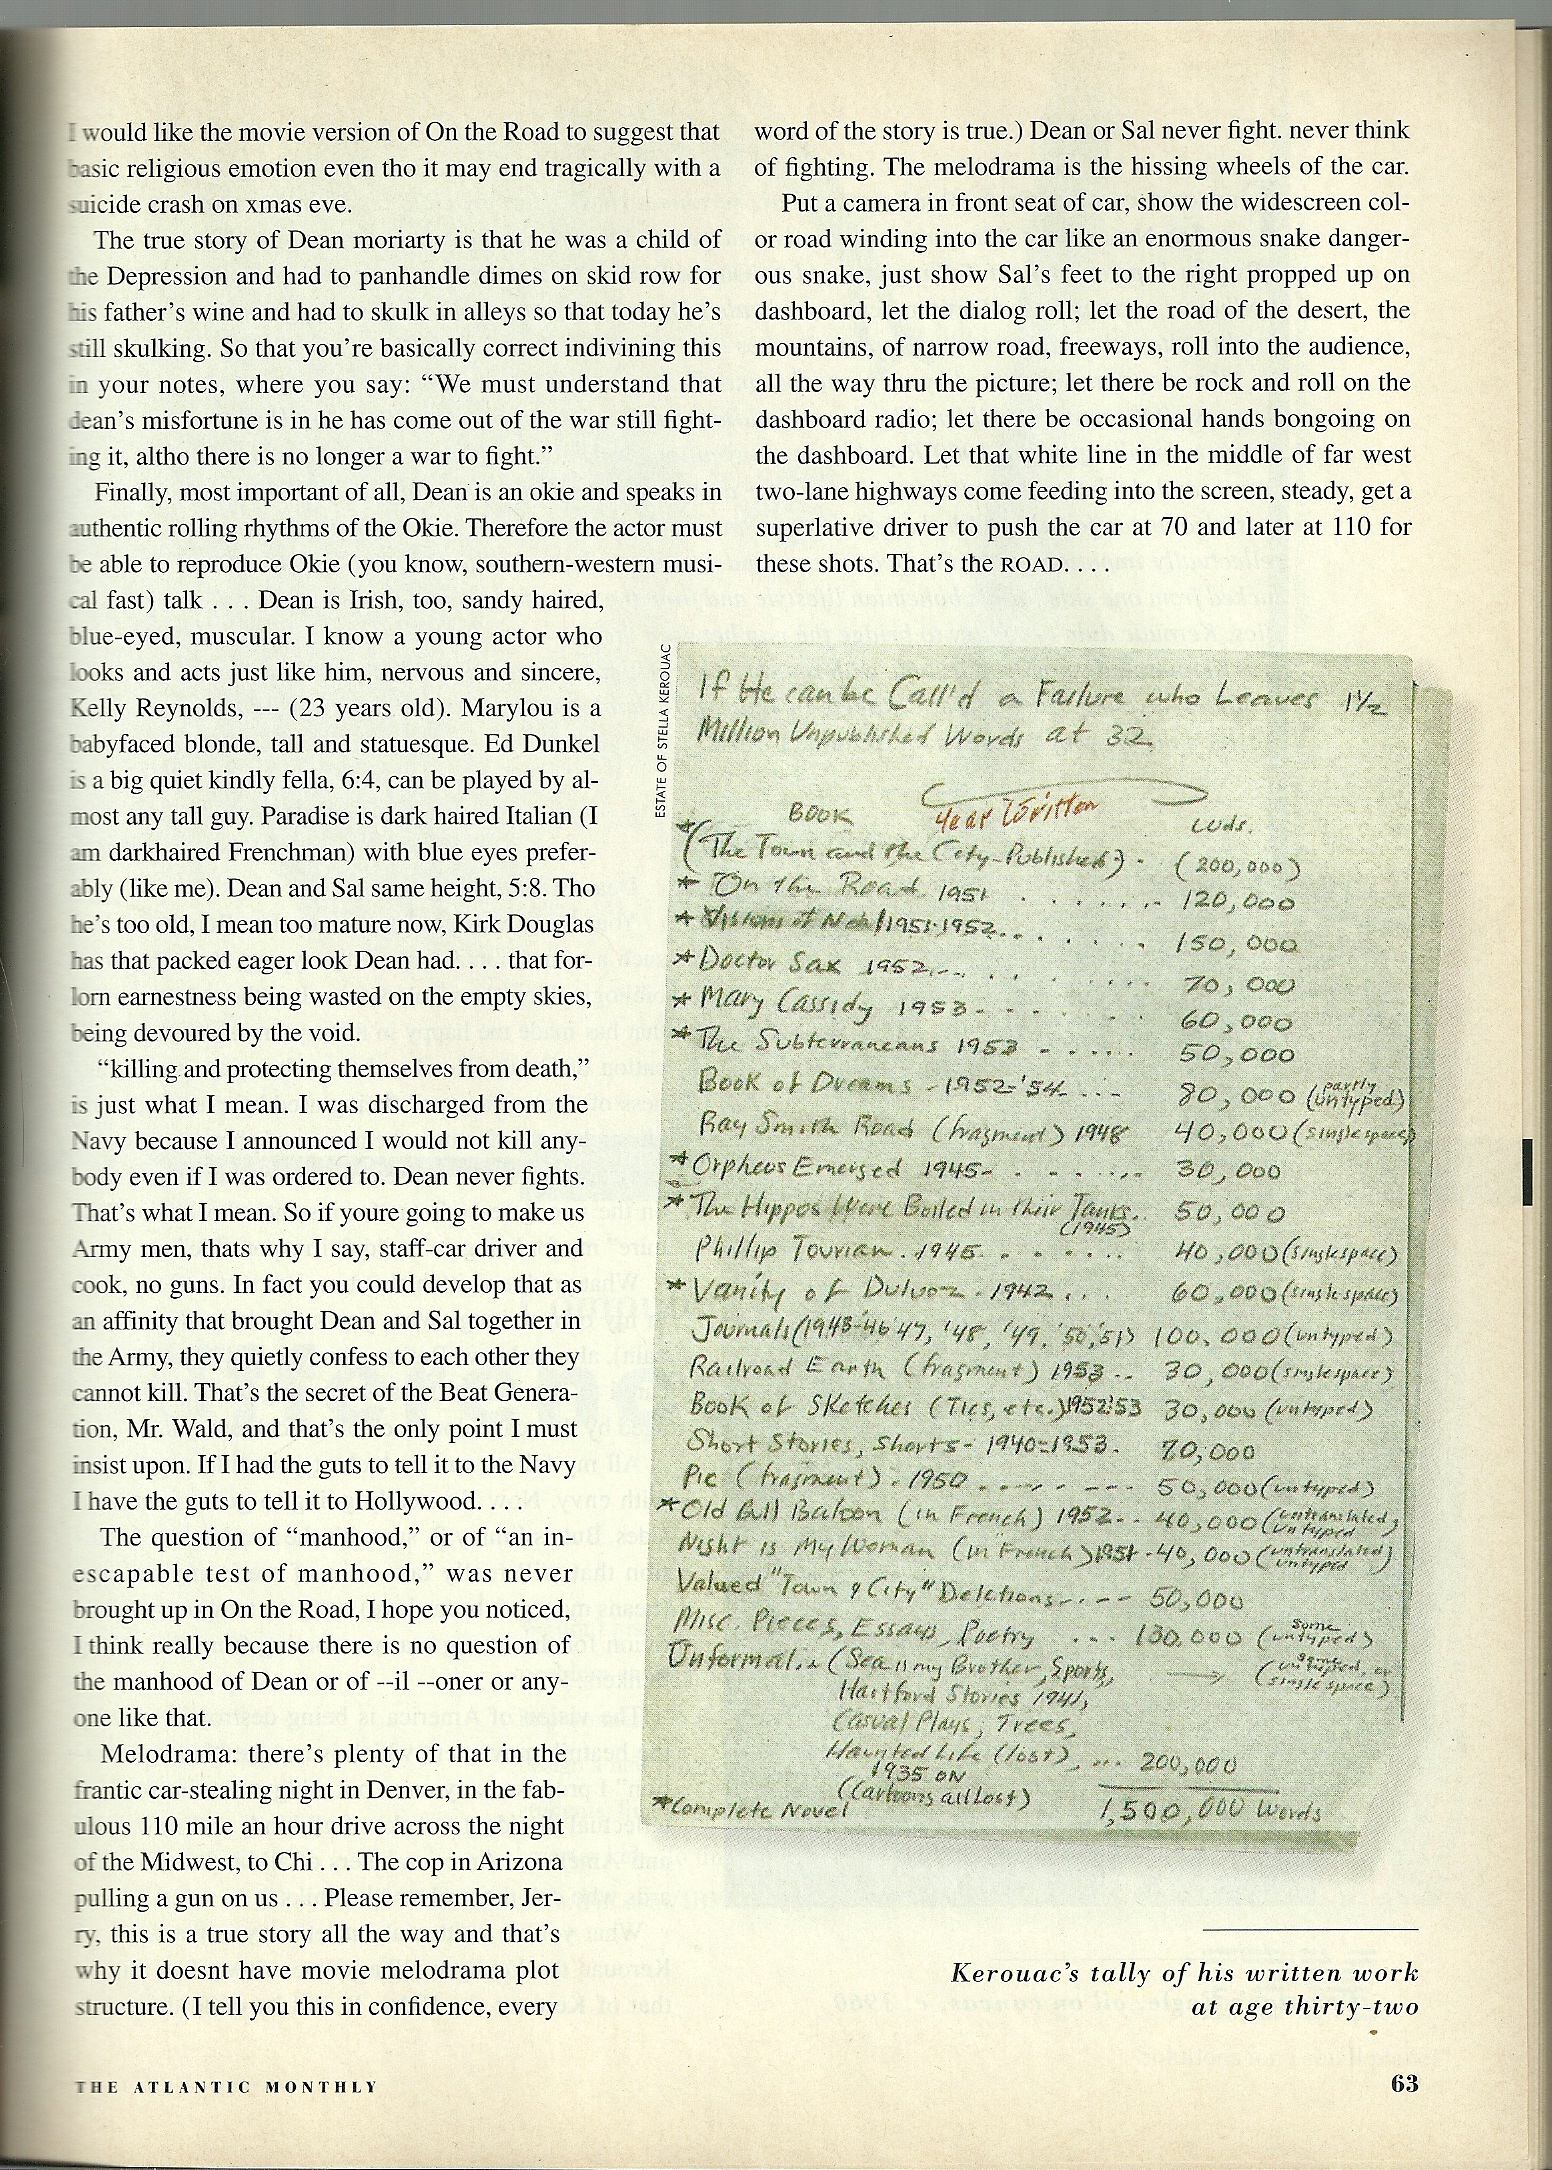 I would like the movie version of On the Road to suggest that
basic religious emotion even tho it may end tragically with a
suicide crash on xmas eve.
The true story of Dean moriarty is that he was a child of
the Depression and had to panhandle dimes on skid row for
his father's wine and had to skulk in alleys so that today he's
still skulking. So that you're basically correct indivining this
in your notes, where you say: “We must understand that
dean's misfortune is in he has come out of the war still fight-
ing it, altho there is no longer a war to fight.”
Finally, most important of all, Dean is an okie and speaks in
authentic rolling rhythms of the Okie. Therefore the actor must
be able to reproduce Okie (you know, southern-western musi-
cal fast) talk . . . Dean is Irish, too, sandy haired,
blue-eyed, muscular. I know a young actor who
looks and acts just like him, nervous and sincere,
Kelly Reynolds, --- (23 years old). Marylou is a
babyfaced blonde, tall and statuesque. Ed Dunkel
is a big quiet kindly fella, 6:4, can be played by al-
most any tall guy. Paradise is dark haired Italian (I
am darkhaired Frenchman) with blue eyes prefer-
ably (like me). Dean and Sal same height, 5:8. Tho
he's too old, I mean too mature now, Kirk Douglas
has that packed eager look Dean had. . . . that for-
lorn earnestness being wasted on the empty skies,
being devoured by the void.
“killing and protecting themselves from death,”
is just what I mean. I was discharged from the
Navy because I announced I would not kill any-
body even if I was ordered to. Dean never fights.
That's what I mean. So if youre going to make us
Army men, thats why I say, staff-car driver and
cook, no guns. In fact you could develop that as
an affinity that brought Dean and Sal together in
the Army, they quietly confess to each other they
cannot kill. That's the secret of the Beat Genera-
tion, Mr. Wald, and that's the only point I must
insist upon. If I had the guts to tell it to the Navy
I have the guts to tell it to Hollywood. . . .
The question of “manhood,” or of “an in-
escapable test of manhood,” was never
brought up in On the Road, I hope you noticed,
I think really because there is no question of
the manhood of Dean or of --il --oner or any-
one like that.
Melodrama: there's plenty of that in the
frantic car-stealing night in Denver, in the fab-
ulous 110 mile an hour drive across the night
of the Midwest, to Chi . . . The cop in Arizona
pulling a gun on us . . . Please remember, Jer-
ry, this is a true story all the way and that's
why it doesnt have movie melodrama plot
structure. (I tell you this in confidence, every
word of the story is true.) Dean or Sal never fight. never think
of fighting. The melodrama is the hissing wheels of the car.
Put a camera in front seat of car, show the widescreen col-
or road winding into the car like an enormous snake danger-
ous snake, just show Sal's feet to the right propped up on
dashboard, let the dialog roll; let the road of the desert, the
mountains, of narrow road, freeways, roll into the audience,
all the way thru the picture; let there be rock and roll on the
dashboard radio; let there be occasional hands bongoing on
the dashboard. Let that white line in the middle of far west
two-lane highways come feeding into the screen, steady, get a
superlative driver to push the car at 70 and later at 110 for
these shots. That's the ROAD. . . .
ESTATE OF STELLA KEROUAC
If He can be Call'd a Failure who Leaves 1½
Million Unpublished Words at 32
BOOK Year Written Wds.
*(The Town and the City-Published) - (200,000)
* On the Road 1951 . . . . . . 120,000
* Visions of Neal 1951-1952 . . . . . . 150,000
* Doctor Sax 1952 . . . . . . 70,000
* Mary Cassidy 1953 - . . . . . 60,000
* The Subterraneans 1953 - . . . . . 50,000
Book of Dreams - 1952-'54 . . . 80,000 (partly untyped)
Ray Smith Road (fragment) 1948 40,000 (singlespace)
* Orpheus Emerged 1945 - . . . . . 30,000
* The Hippos Were Boiled in their Tanks. (1945) 50,000
Phillip Tourian . 1945 . . . . . . 40,000 (singlespace)
* Vanity of Duluoz - 1942 . . . 60,000 (singlespace)
Journals (1943-'46 '47, '48, '49, '50, '51) 100,000 (untyped)
Railroad Earth (fragment) 1953 . . 30,000 (singlespace)
Book of Sketches (Tics, etc.) 1952'53 30,000 (untyped)
Short Stories, shorts - 1940-1953. 70,000
Pic (fragment) - 1950 . . . . . . 50,000 (untyped)
* Old Bull Baloon (in French) 1952 . . 40,000 (untranslated, untyped
Night is My Woman (in French) 1951 - 40,000 (untranslated) untyped
Valued "Town & City" Deletions . . - - 50,000
Misc. Pieces, Essays, Poetry . . . 130,000 (some untyped)
(Sea is my Brother, Sports, → (some untyped, or single space)
Hartford Stories 1941,
Casual Plays, Trees,
Haunted Life (lost), ... 200,000
1935 ON
(Cartoons all Lost)
*Complete Novel 1,500,000 Words
Kerouac's tally of his written work
at age thirty-two
THE ATLANTIC MONTHLY
63